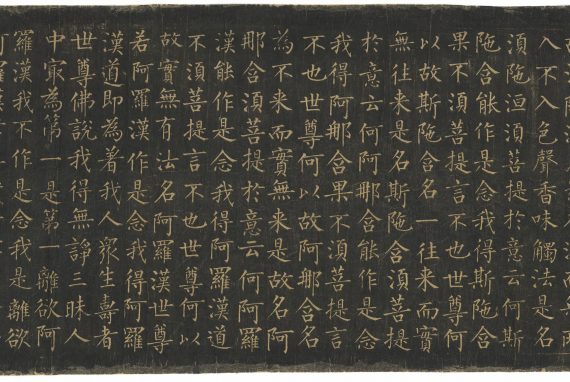 入不入色聲香味觸法是名
須陁洹須菩提於意云何斯
陁含能作是念我得斯陁含
果不須菩提言不也世尊何
以故斯陁含名一往來而實
無往來是名斯陁含須菩提
於意云何阿那含能作是念
我得阿那含果不須菩提言
不也世尊何以故阿那含名
為不來而實無來是故名阿
那含須菩提於意云何阿羅
漢能作是念我得阿羅漢道
不須菩提言不也世尊何以
故實無有法名阿羅漢世尊
若阿羅漢作是念我得阿羅
漢道即為著我人眾生壽者
世尊佛說我得無諍三昧人
中冣為第一是第一離欲阿
羅漢我不作是念我是離欲